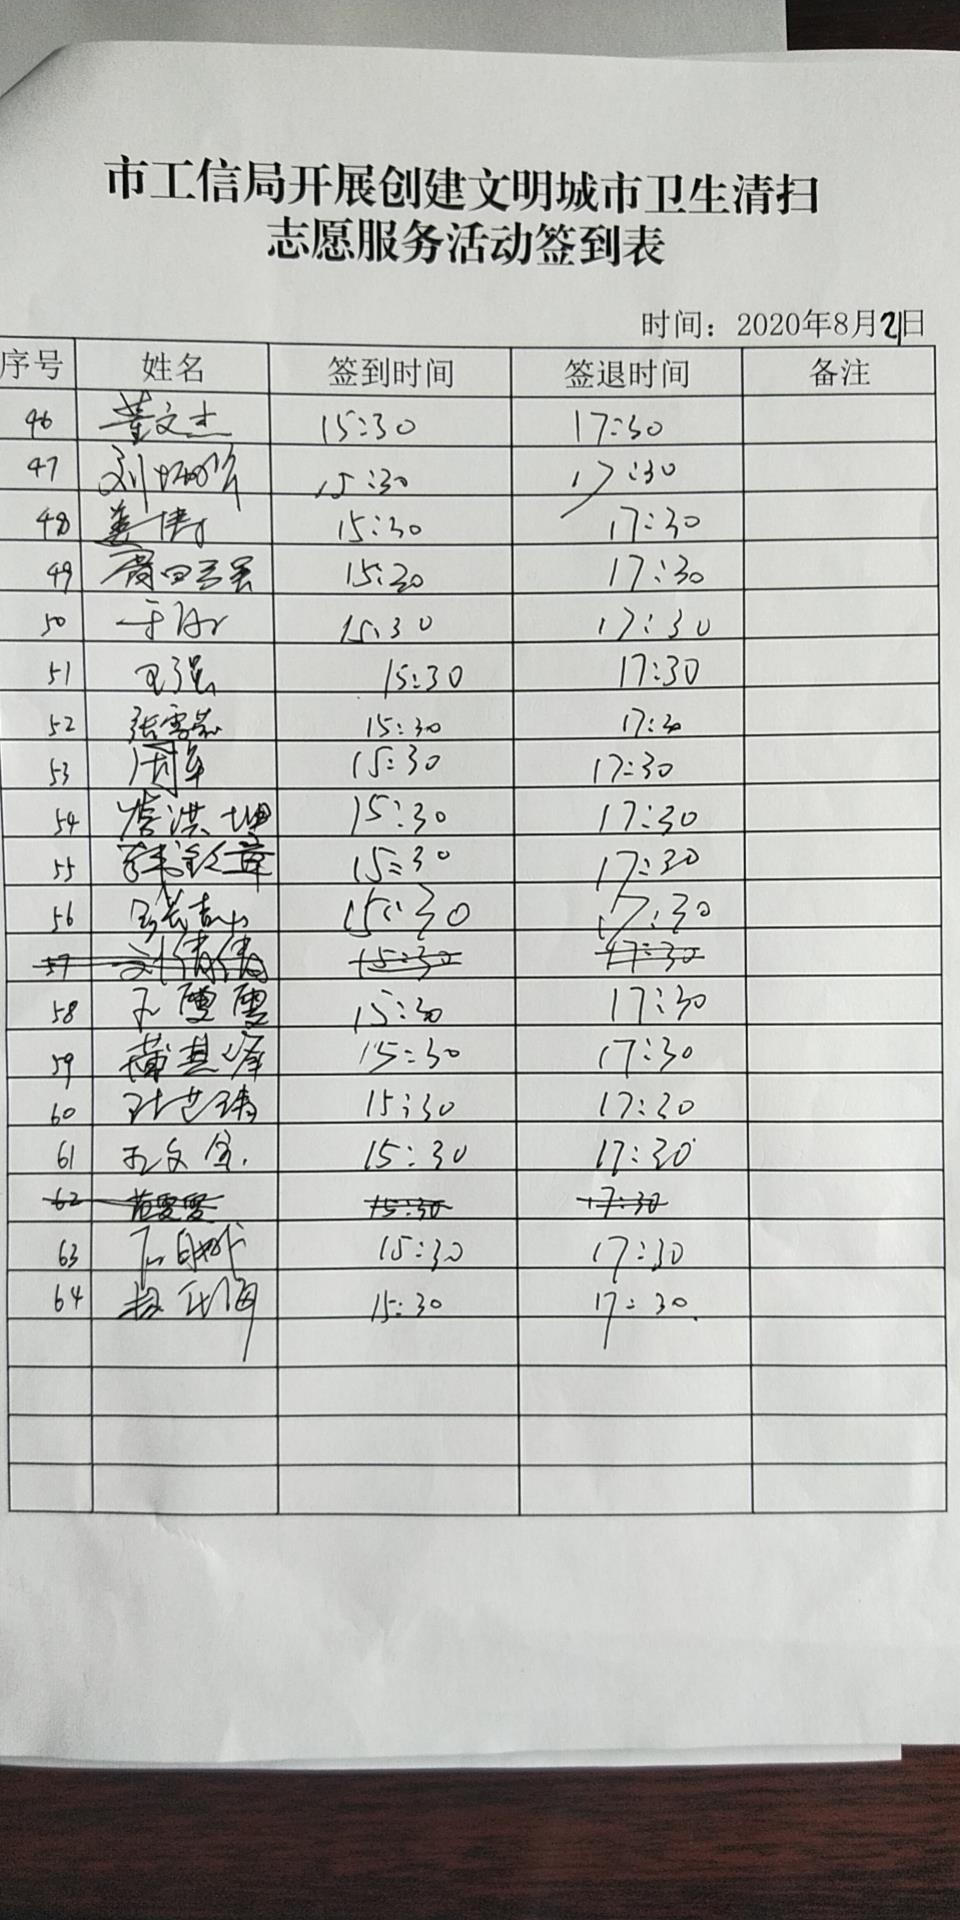 市工信局开展创建文明城市卫生清扫
志愿服务活动签到表
时间：2020年8月21日
序号 姓名 签到时间 签退时间 备注
46 董文杰 15:30 17:30
47 15:30 17:30
48 姜博 15:30 17:30
49 15:30 17:30
50 15:30 17:30
51 王强 15:30 17:30
52 15:30 17:30
53 周军 15:30 17:30
54 洪坤 15:30 17:30
55 15:30 17:30
56 15:30 17:30
57 刘倩倩 15:30 17:30
58 15:30 17:30
59 15:30 17:30
60 15:30 17:30
61 孔文 15:30 17:30
62 15:30 17:30
63 15:30 17:30
64 15:30 17:30